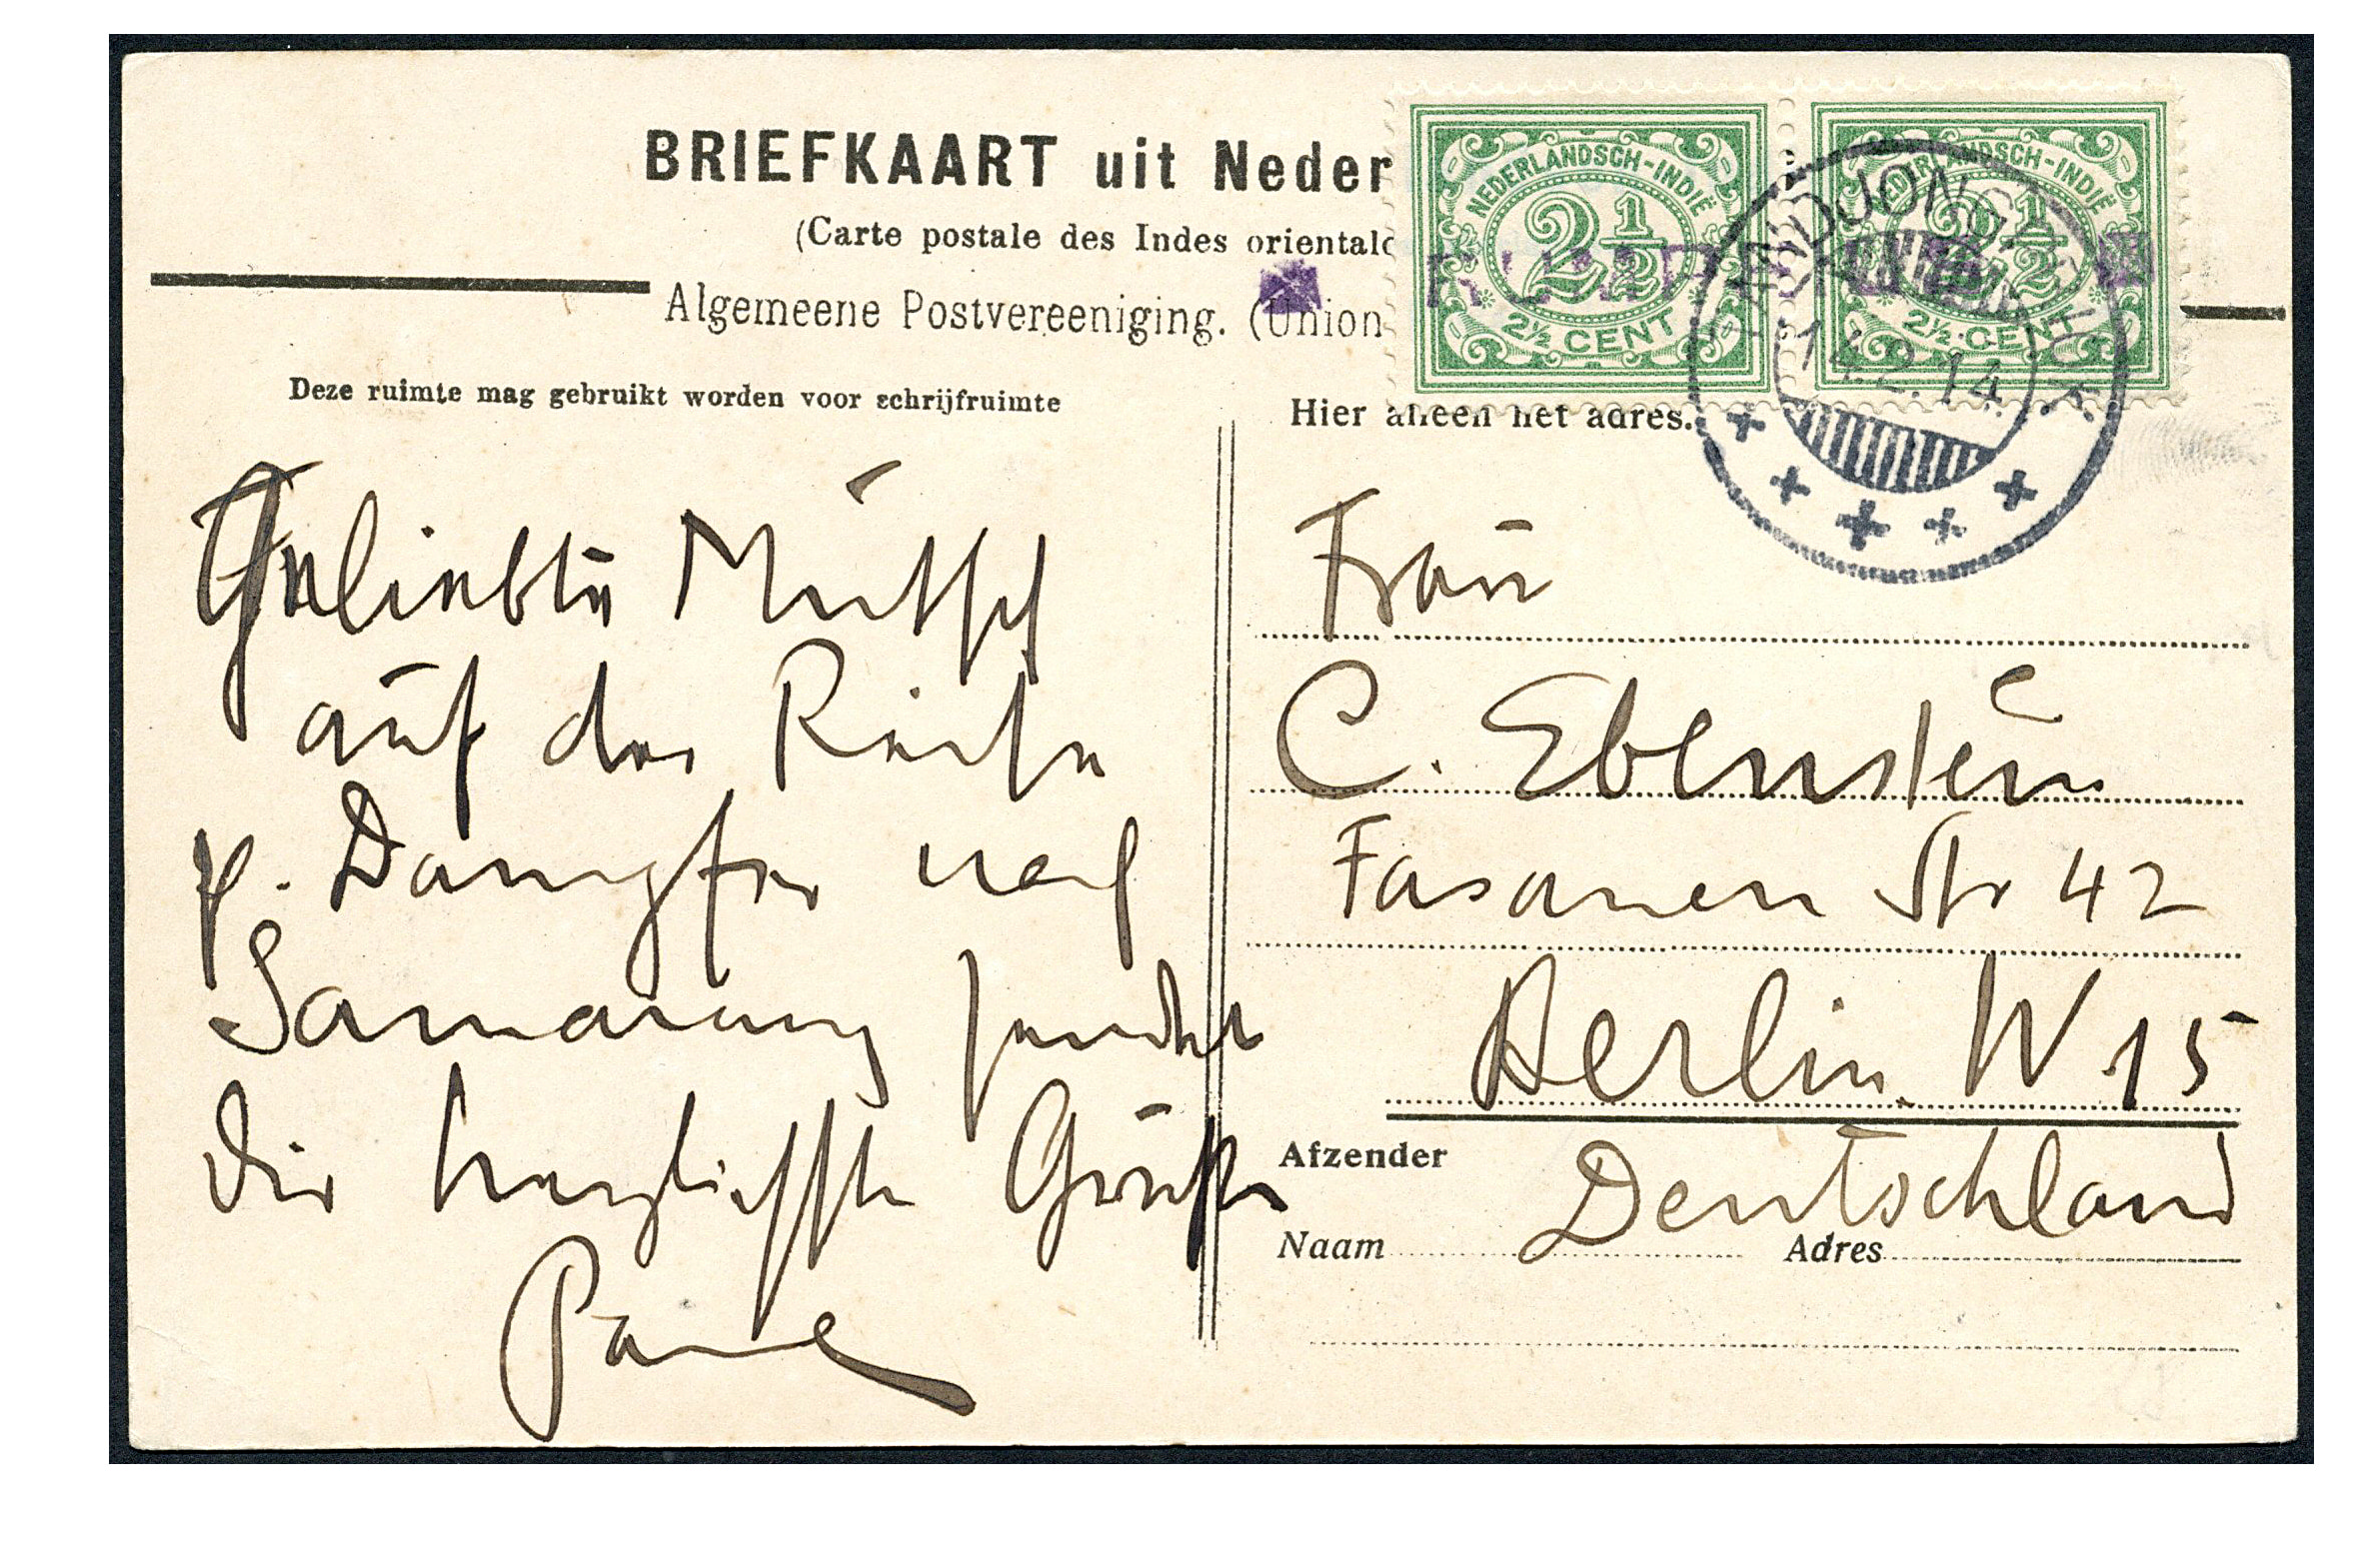 BRIEFKAART uit Neder
(Carte postale des Indes orientale
Algemeene Postvereeniging. (Union
NEDERLANDSCH-INDIË
2½
2½ CENT
NEDERLANDSCH-INDIË
2½
2½ CENT
TANDJONG PRIOK.
14.2.14
Deze ruimte mag gebruikt worden voor schrijfruimte
Hier alleen het adres.
Geliebte Mutsch
auf der Reise
p. Dampfer nach
Samarang sendet
Dir herzlichste Grüße
Paul
Frau
C. Ebenstein
Fasanen Str 42
Berlin. W 15
Deutschland
Afzender
Naam
Adres